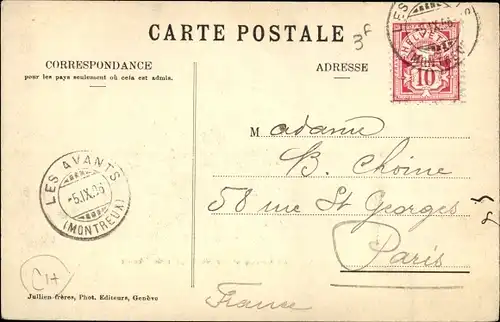 CARTE POSTALE
3F
CORRESPONDANCE
pour les pays seulement où cela est admis.
ADRESSE
HELVETIA
10
(MONTREUX)
Madame
B. Choine
58 rue St Georges
Paris
France
LES AVANTS
-5.IX.06
(MONTREUX)
CH
Jullien frères, Phot. Editeurs, Genève